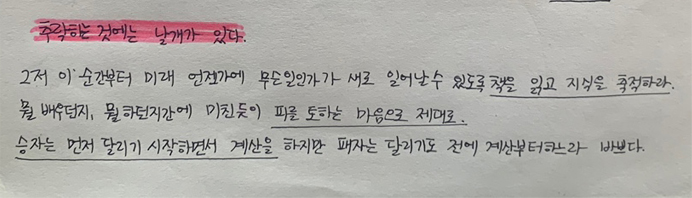 추락하는 것에는 날개가 있다.
그저 이 순간부터 미래 언젠가에 무슨일인가가 새로 일어날수 있도록 책을 읽고 지식을 축적하라.
뭘 배우던지, 뭘 하던지간에 미친듯이 피를 토하는 마음으로 제대로.
승자는 먼저 달리기 시작하면서 계산을 하지만 패자는 달리기도 전에 계산부터하느라 바쁘다.